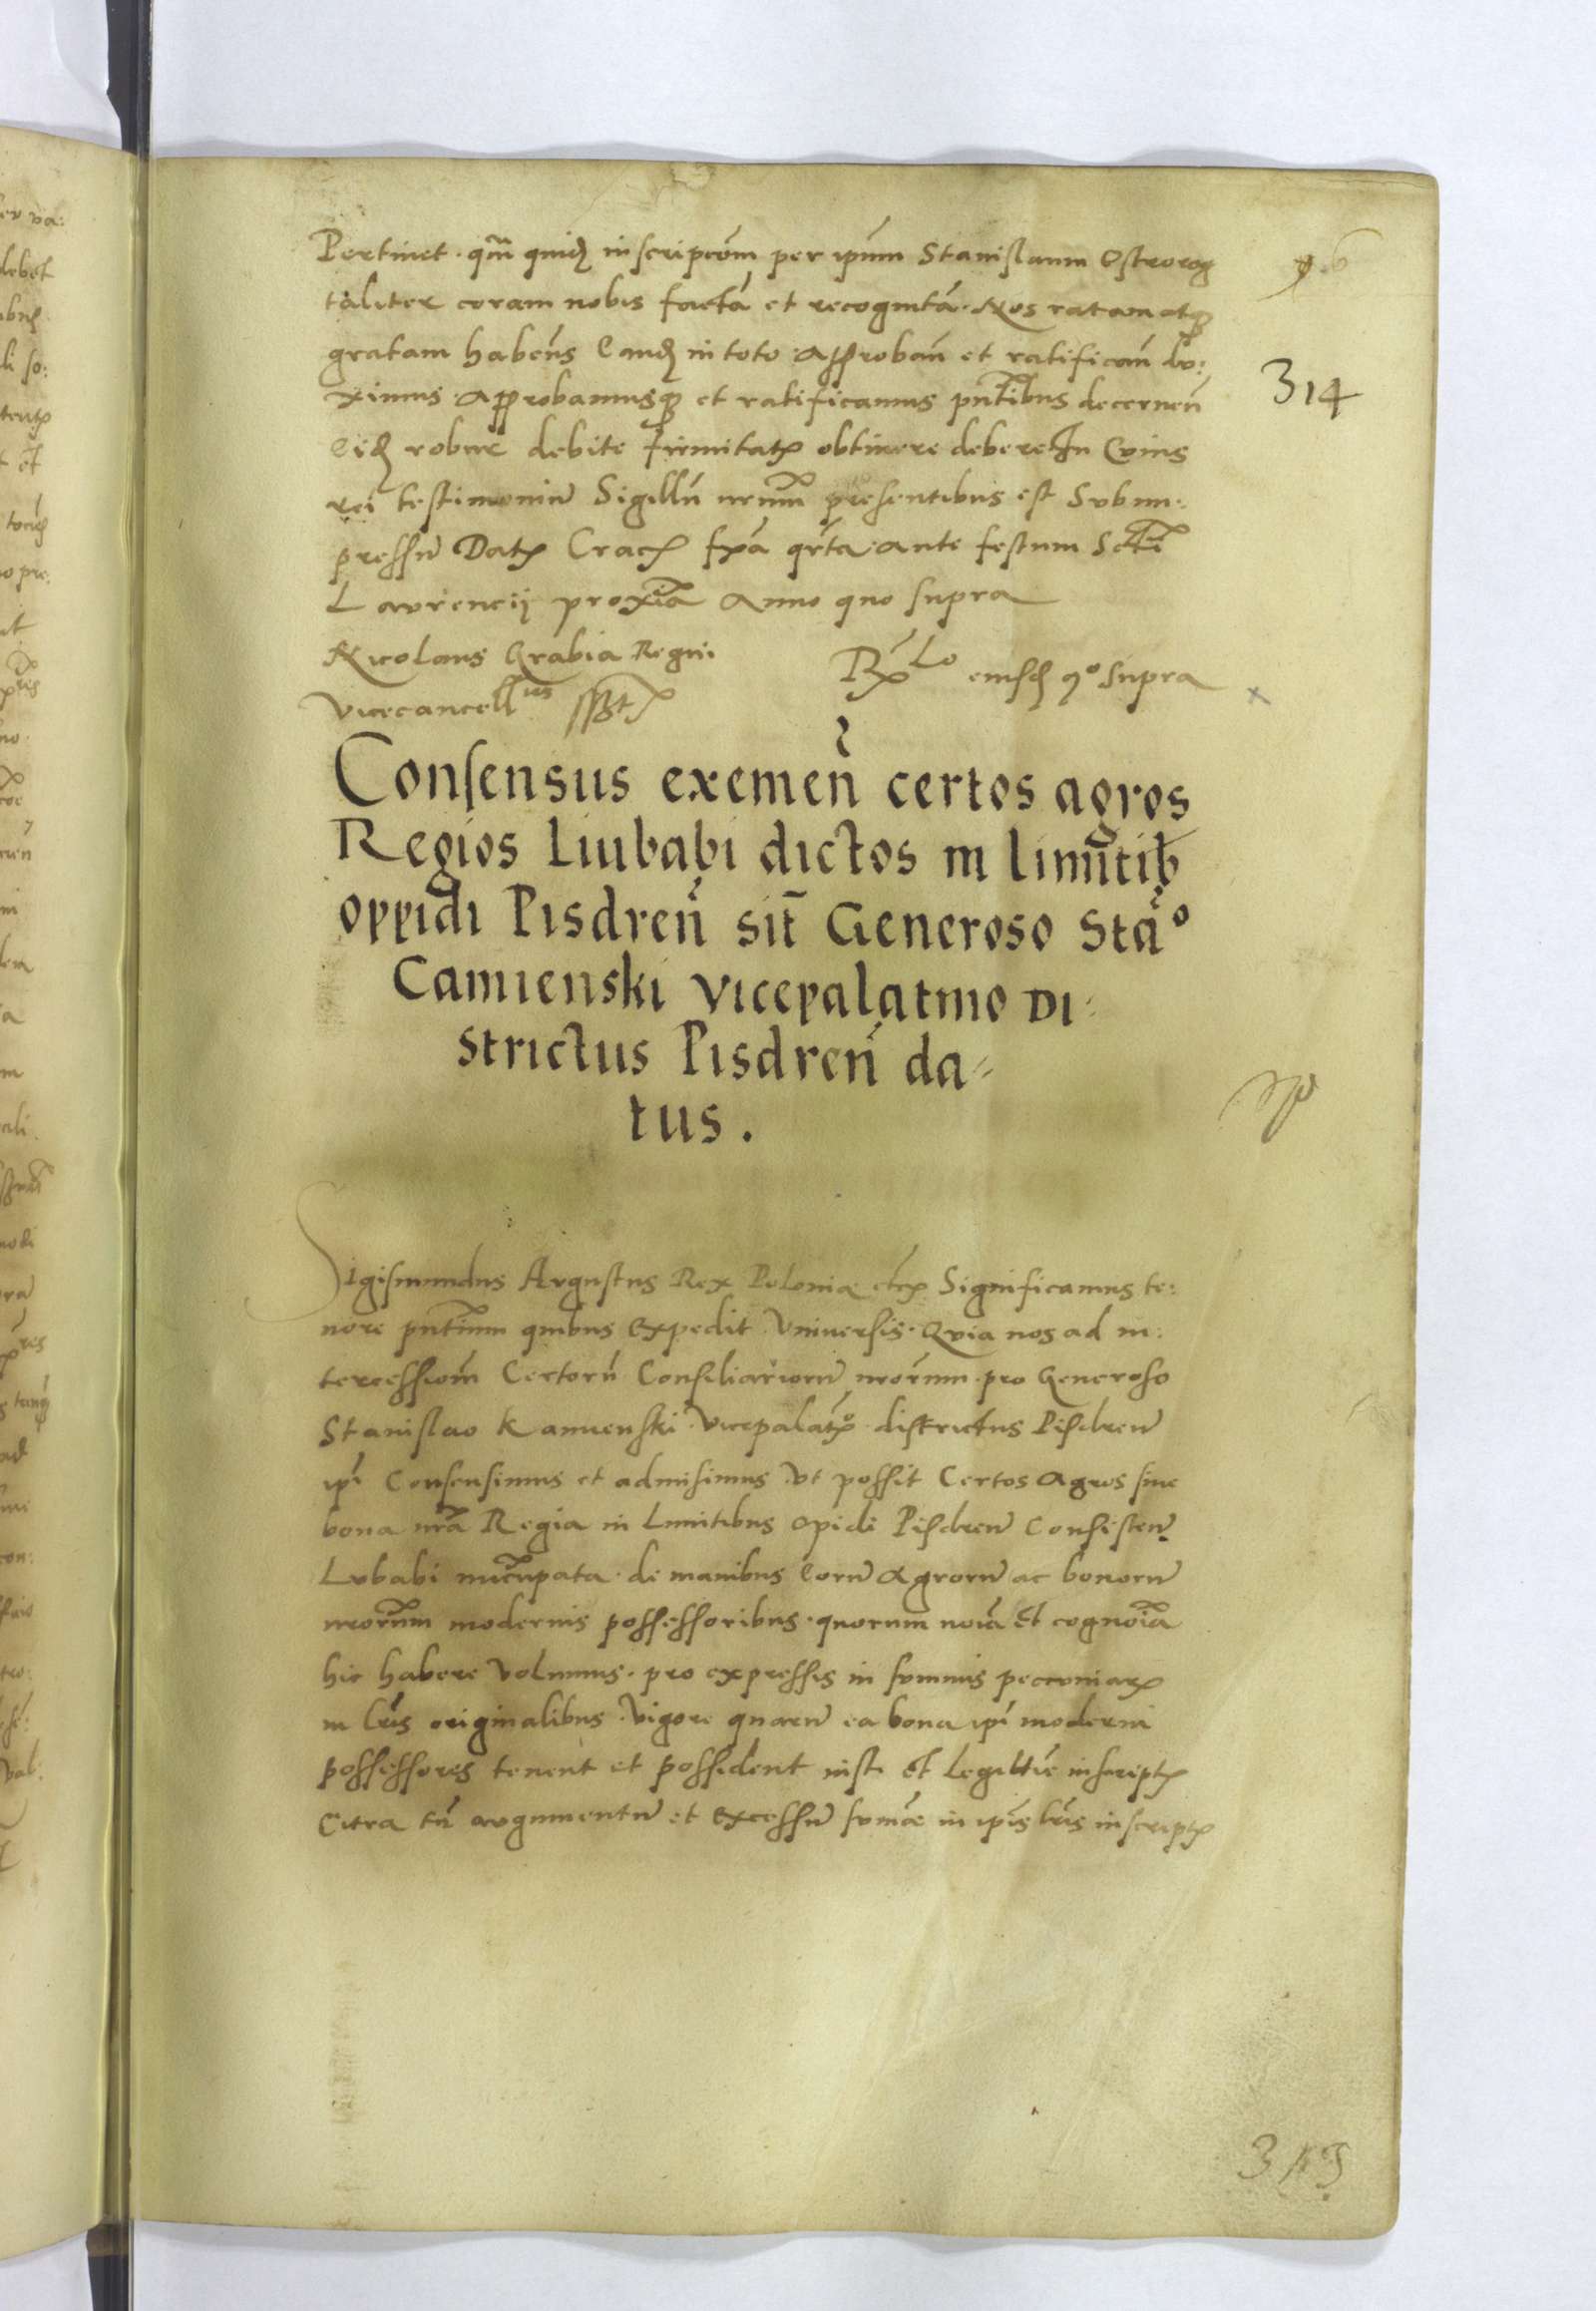 Pertinet. qm̃ quidẽ inscripcõm per ipũm Stanislaum Ostrorog
taliter coram nobis factã et recognitã. Nos ratam atq3
gratam habeñs Eandẽ in toto approbañ et ratificañ du:
ximus approbamusq3 et ratificamus pñtibus decerneñ
Eidẽ robur debite firmitatꝭ obtinere debere In Cuius
rei testimoniũ Sigillũ nrũm presentibus est Subim:
pressũ Datꝭ Cracꝭ fꝭa qrta ante festum Scti
Laurencij proxĩa Anno quo supra
Nicolaus Grabia Regni
Vicecancellius sspt
Rlo eiusdẽ qo supra
Consensus exemeñ certos agros
Regios Liubabi dictos in limitib
oppidi Pisdreñ sit̃ Generoso Stao
Camienski vicepalatino Di=
strictus Pisdreñ da=
tus.
Sigismundus Augustus Rex Poloniæ etcꝭ Significamus te:
nore pñtium quibus expedit Vniuersis. Quia nos ad in:
tercessiom̃ Certorũ Consiliariorũ nrorum. pro Generoso
Stanislao Kamienski Vicepalatꝭo districtus Pisdreñ
ipĩ Consensimus et admisimus Vt possit Certos Agros siue
bona nrã Regia in Limitibus opidi Pisdreñ Consisteñ
Lubabi nuncupata. de manibus Eorũ Agrorũ ac bonorũ
nrorum modernis possessoribus. quorum noĩa et cognoĩa
hic habere Volumus. pro expressis in summis pecuniarꝭ
in lrĩs originalibus. Vigore quarũ ea bona ipĩ moderni
possessores tenent et possident iuste et Legittiẽ inscriptꝭ
Citra tñ augumentũ et excessũ summæ in ipĩs lrĩs inscriptꝭ
314